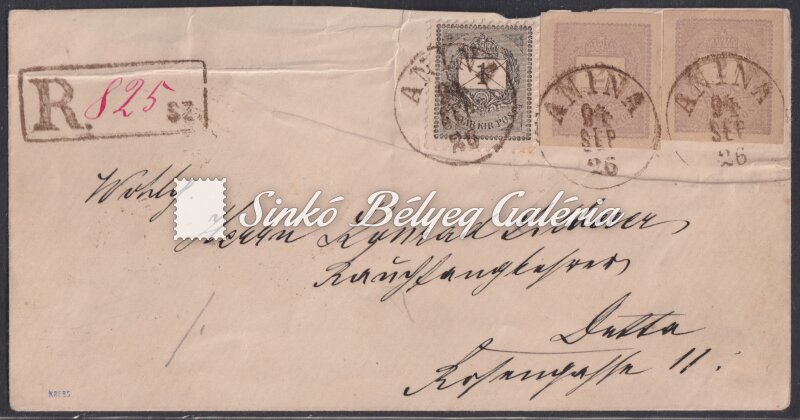 R. 825 sz.
1
MAGYAR KIR. POSTA
ANINA
94
SEP
26
ANINA
94
SEP
26
ANINA
94
SEP
26
Sinkó Bélyeg Galéria
Wohlg
Herrn Konrad
Rauchfangkehrer
Detta
Rosengasse 11.
KREBS